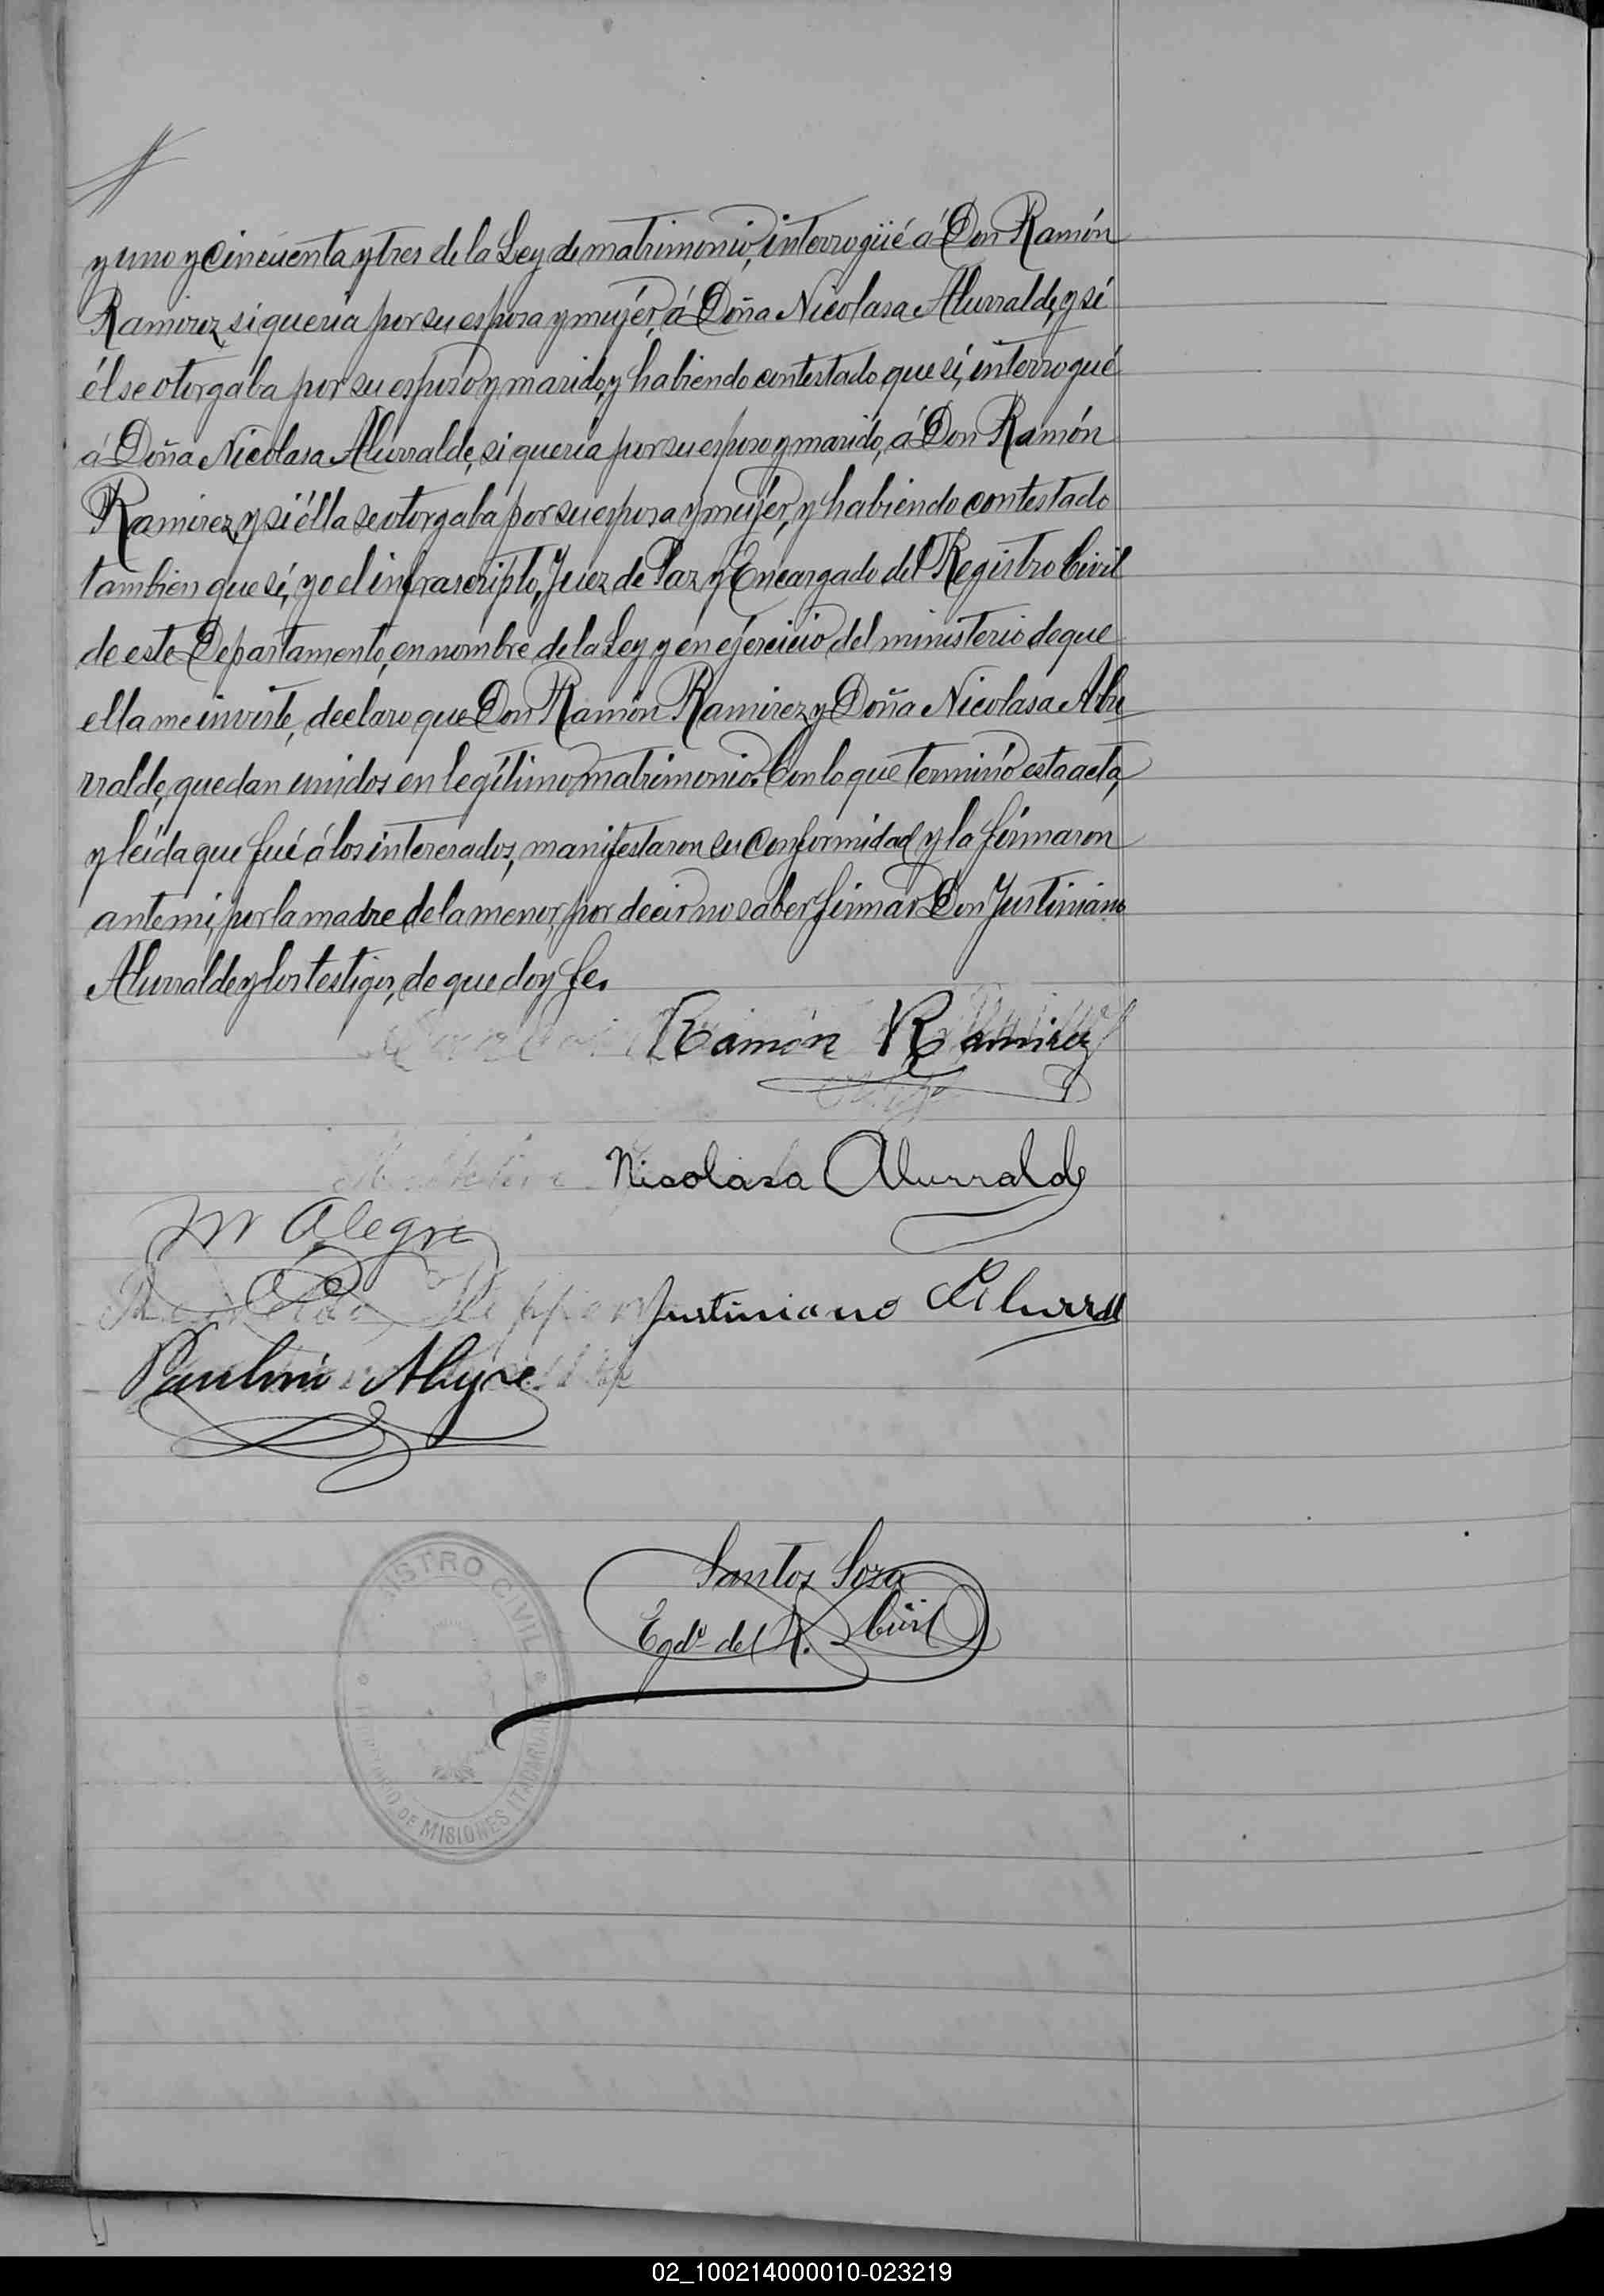 y uno y cincuenta y tres de la Ley de matrimonio, interrogüé á Don Ramón
Ramirez si queria por su esposa y mujér, á Doña Nicolasa Alurralde, y si
él se otorgaba por su esposo y marido, y habiendo contestado que si, interrogué
á Doña Nicolasa Alurralde, si queria por su esposo y marido, á Don Ramón
Ramirez, y si élla se otorgaba por su esposa y mujér, y habiendo contestado
tambien que si, yo el infrascripto, Juez de Paz y Encargado del Registro Civil
de este Departamento, en nombre de la Ley y en ejercicio del ministerio de que
ella me inviste, declaro que Don Ramón Ramirez y Doña Nicolasa Alu
rralde, quedan unidos en legítimo matrimonio. Con lo que terminó esta acta,
y leida que fué á los interesados, manifestaron su conformidad y la firmaron
ante mi, por la madre de la menor, por decir no saber firmar Don Justiniano
Alurralde y los testigos, de que doy fe.
Ramón Ramirez
Nicolasa Alurralde
M Alegre
Justiniano Alurralde
Paulino Alegre
Santos Sosa
Egdo del R. Civil
REGISTRO CIVIL
TERRITORIO DE MISIONES ITACARUARÉ
02_100214000010-023219